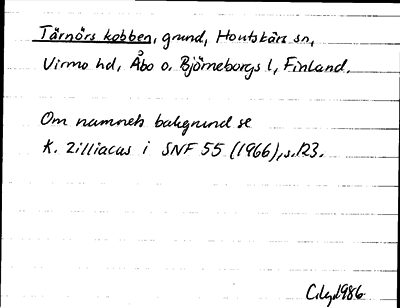 Tärnörs kobben, grund, Houtskärs sn,
Virmo hd, Åbo o. Björneborgs l, Finland.
Om namnets bakgrund se
K. Zilliacus i SNF 55 (1966), s. 123.
1986